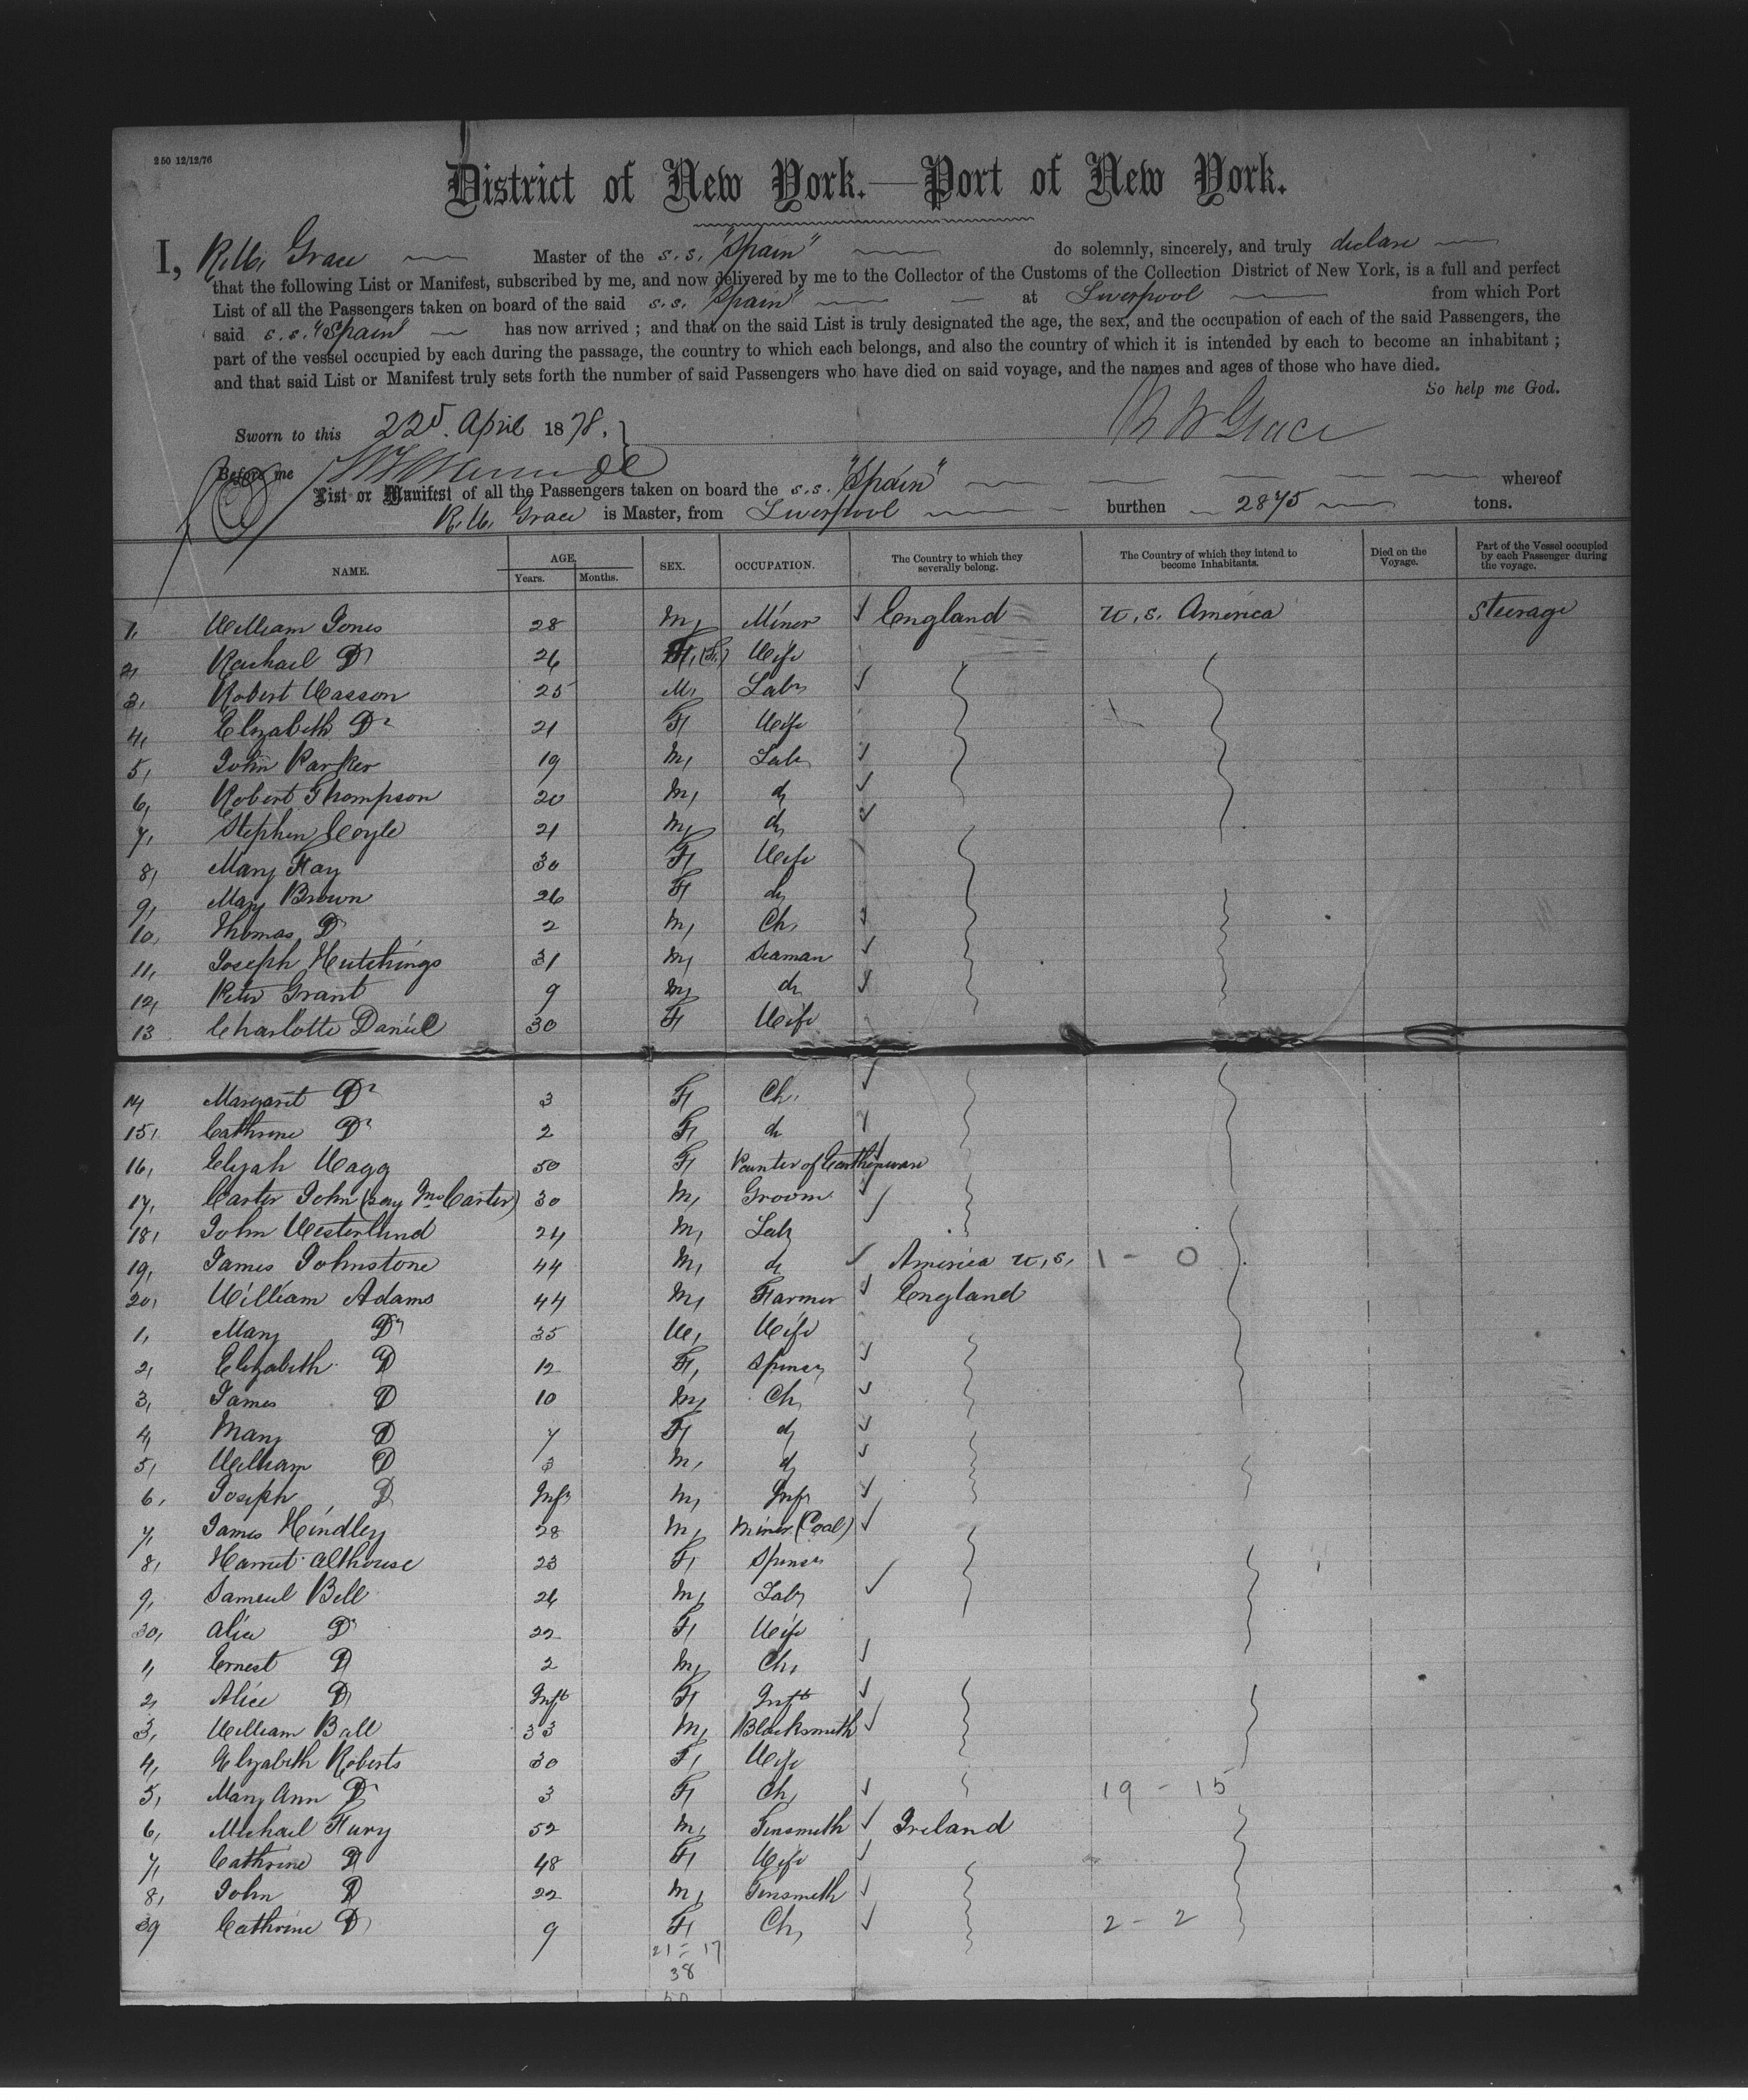 250 12/12/76
District of New York.—Port of New York.
I, R. W. Grace Master of the s.s. "Spain" do solemnly, sincerely, and truly declare
that the following List or Manifest, subscribed by me, and now delivered by me to the Collector of the Customs of the Collection District of New York, is a full and perfect
List of all the Passengers taken on board of the said s.s. "Spain" at Liverpool from which Port
said s.s. "Spain" has now arrived ; and that on the said List is truly designated the age, the sex, and the occupation of each of the said Passengers, the
part of the vessel occupied by each during the passage, the country to which each belongs, and also the country of which it is intended by each to become an inhabitant ;
and that said List or Manifest truly sets forth the number of said Passengers who have died on said voyage, and the names and ages of those who have died.
So help me God.
Sworn to this 22d April 1878. R W Grace
Before me
List or Manifest of all the Passengers taken on board the s.s. "Spain" whereof
R. W. Grace is Master, from Liverpool burthen 2875 tons.
NAME. AGE Years. Months. SEX. OCCUPATION. The Country to which they severally belong. The Country of which they intend to become Inhabitants. Died on the Voyage. Part of the Vessel occupied by each Passenger during the voyage.
1, William Jones 28 M, Miner England U.S. America Steerage
2, Rachael Do 26 F, Wife
3, Robert Wasson 25 M, Labr
4, Elizabeth Do 21 F, Wife
5, John Parker 19 M, Labr
6, Robert Thompson 20 M, do
7, Stephen Coyle 21 M, do
8, Mary Fay 30 F, Wife
9, Mary Brown 26 F, do
10, Thomas Do 2 M, Ch,
11, Joseph Hutchings 31 M, Seaman
12, Peter Grant 9 M, do
13 Charlotte Daniel 30 F, Wife
14 Margaret Do 3 F, Ch,
15, Cathrine Do 2 F, do
16, Elijah Wagg 50 F, Painter of Earthenware
17, Carter John (say Mc Carter) 30 M, Groom
18, John Westerlund 24 M, Labr
19, James Johnstone 44 M, do America U.S. 1 - 0
20, William Adams 44 M, Farmer England
1, Mary Do 35 W, Wife
2, Elizabeth Do 12 F, Spinsr
3, James Do 10 M, Ch,
4, Mary Do 7 F, do
5, William Do 3 M, do
6, Joseph Do Inft M, Inft
7, James Hindley 28 M, Miner (Coal)
8, Harriet Althouse 23 F, Spinsr
9, Samuel Bell 26 M, Labr
30, Alice Do 22 F, Wife
1, Ernest Do 2 M, Ch,
2, Alice Do Inft F, Inft
3, William Ball 33 M, Blacksmith
4, Elizabeth Roberts 30 F, Wife
5, Mary Ann Do 3 F, Ch, 19 - 15
6, Michael Fury 52 M, Tinsmith Ireland
7, Cathrine Do 48 F, Wife
8, John Do 22 M, Tinsmith
39 Cathrine Do 9 F, Ch, 2 - 2
21 = 17
38